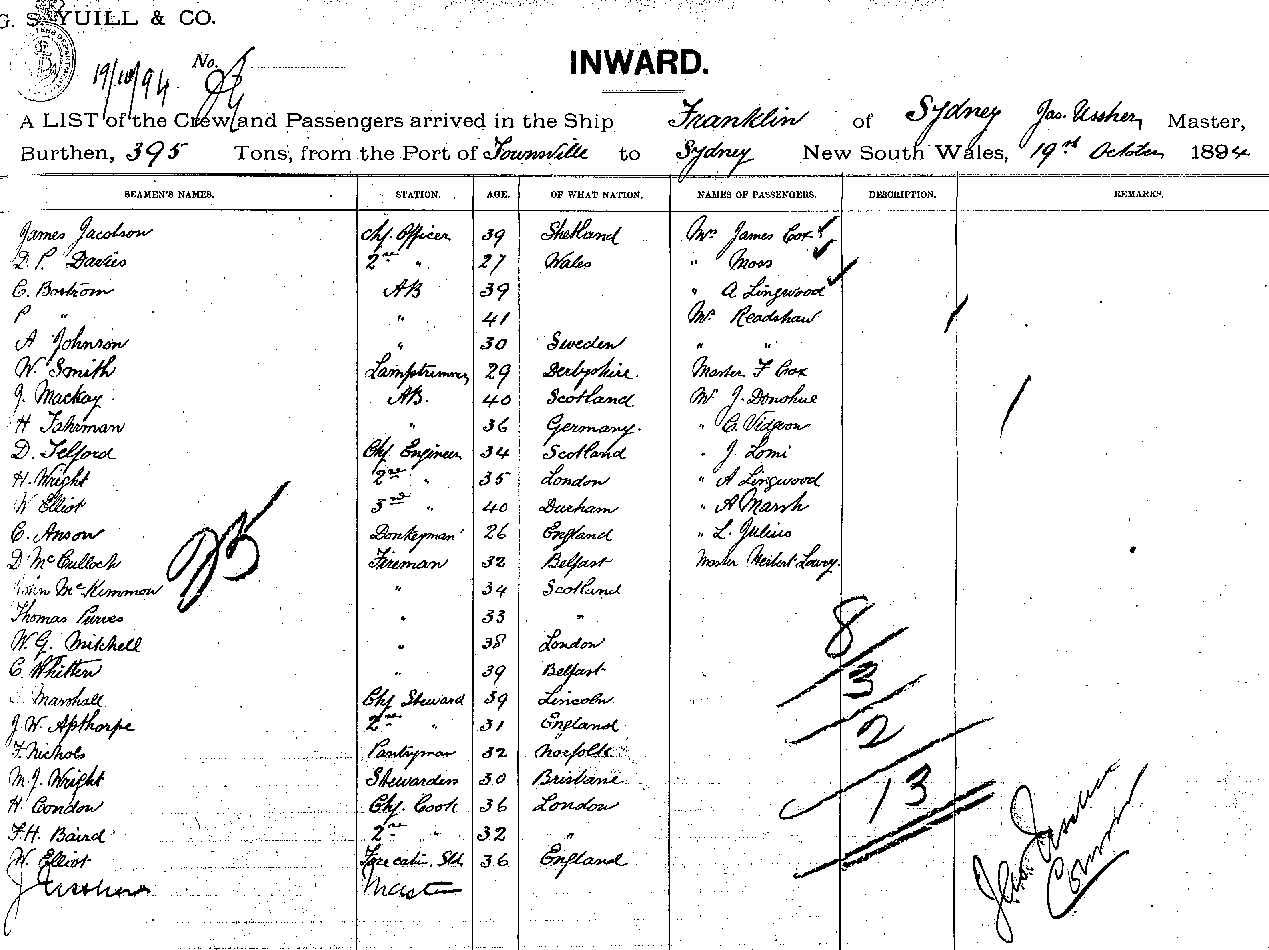 G. S. YUILL & CO.
19/10/94 No.
INWARD.
A LIST of the Crew and Passengers arrived in the Ship Franklin of Sydney Jas. Ussher, Master,
Burthen, 395 Tons, from the Port of Townsville to Sydney New South Wales, 19th October 1894
SEAMEN'S NAMES. STATION. AGE. OF WHAT NATION. NAMES OF PASSENGERS. DESCRIPTION. REMARKS.
James Jacobson Chf. Officer 39 Shetland Mrs James Cox
D. P. Davies 2nd " 27 Wales " Moss
C. Boström AB 39 " A Lingwood
P " " 41 Mr. Readshaw
A Johnson " 30 Sweden " "
W. Smith Lamptrimmer 29 Derbyshire. Master F Cox
J. Mackay. AB. 40 Scotland Mr J. Donohue
H Fahrman " 36 Germany. " C. Vidgeon
D. Telford Chf Engineer 34 Scotland " J. Lomi
H. Wright 2nd " 35 London " A Lingwood
W Elliot 3rd " 40 Durham " A Marsh
C. Anson Donkeyman 26 England " L. Julius
D McCulloch Fireman 32 Belfast Master Herbert Lowry.
John McKimmon " 34 Scotland
Thomas Purves " 33 "
W. G. Mitchell " 38 London
C. Whitten " 39 Belfast
Marshall Chf Steward 39 Lincoln
J. W. Apthorpe 2nd " 31 England
F. Nichols Pantryman 32 Norfolk
M. J. Wright Stewardess 30 Brisbane
H. Condon Chf. Cook 36 London
F. H. Baird 2nd " 32 "
W. Elliot 36 England
J Ussher Master
25
8
3
2
13